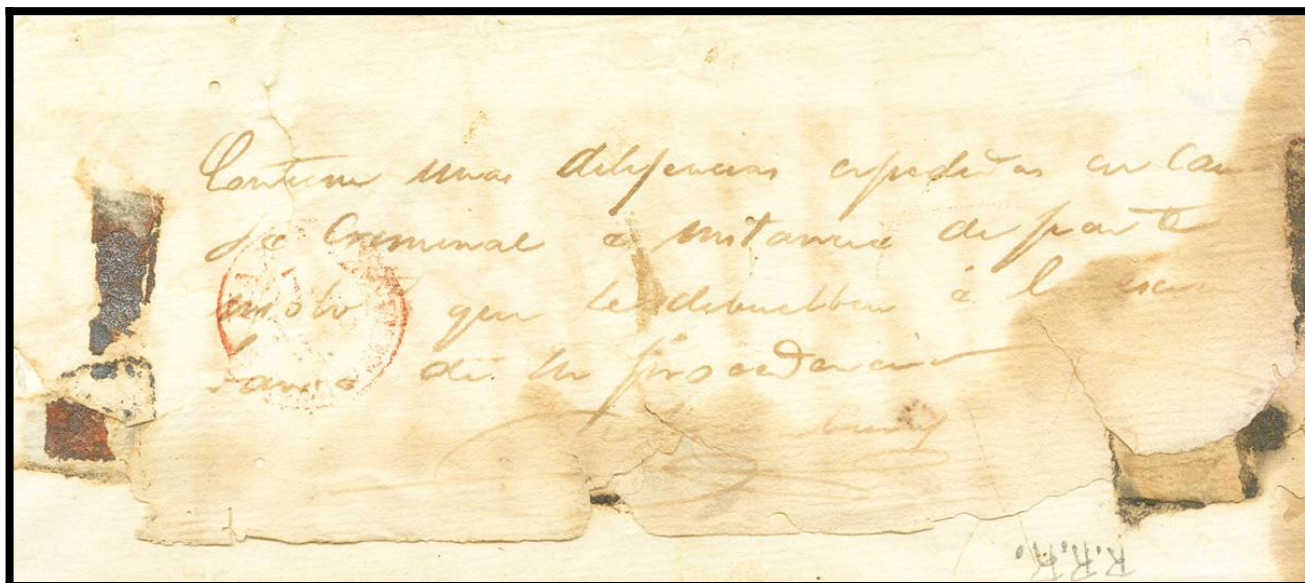 Contiene unas diligencias expedidas en cau
sa Criminal a instancia de parte
que se debuelben á la escri
bania de su procedencia
R.R.R.